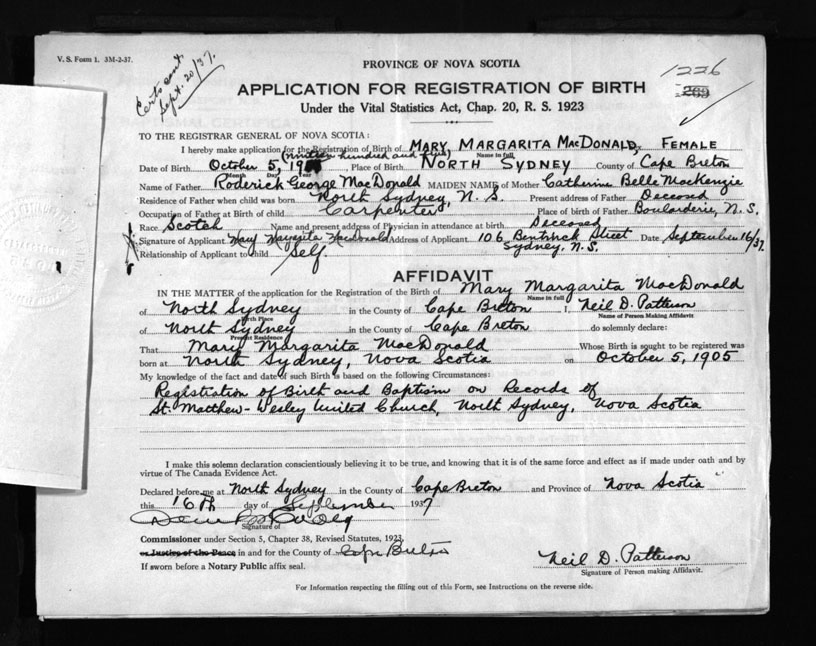 V. S. Form 1. 3M-2-37.
Certs sent
Sept. 20/37.
PROVINCE OF NOVA SCOTIA
1226
269
APPLICATION FOR REGISTRATION OF BIRTH
Under the Vital Statistics Act, Chap. 20, R. S. 1923
TO THE REGISTRAR GENERAL OF NOVA SCOTIA:
I hereby make application for the Registration of Birth of MARY, MARGARITA MACDONALD, FEMALE
(nineteen hundred and five) Name in full
Date of Birth October 5, 190 Place of Birth NORTH SYDNEY County of Cape Breton
Month Day Year
Name of Father Roderick George MacDonald MAIDEN NAME of Mother Catherine Belle MacKenzie
Residence of Father when child was born North Sydney, N. S. Present address of Father Deceased
Occupation of Father at Birth of child Carpenter Place of birth of Father Boularderie, N. S.
Race Scotch Name and present address of Physician in attendance at birth Deceased
Signature of Applicant Mary Margarita MacDonald Address of Applicant 106 Bentinck Street Date September 16/37.
Sydney, N.S.
Relationship of Applicant to child Self
AFFIDAVIT
IN THE MATTER of the application for the Registration of the Birth of Mary Margarita MacDonald
Name in full
of North Sydney in the County of Cape Breton I, Neil D. Patterson
Birth Place Name of Person Making Affidavit
of North Sydney in the County of Cape Breton do solemnly declare:
Present Residence
That Mary Margarita MacDonald Whose Birth is sought to be registered was
born at North Sydney, Nova Scotia on October 5, 1905
My knowledge of the fact and date of such Birth is based on the following Circumstances:
Registration of Birth and Baptism on Records of
St. Matthew-Wesley United Church, North Sydney, Nova Scotia
I make this solemn declaration conscientiously believing it to be true, and knowing that it is of the same force and effect as if made under oath and by
virtue of The Canada Evidence Act.
Declared before me at North Sydney in the County of Cape Breton and Province of Nova Scotia
this 16th day of September 1937
Signature of
Commissioner under Section 5, Chapter 38, Revised Statutes, 1923,
or Justice of the Peace in and for the County of Cape Breton
If sworn before a Notary Public affix seal.
Neil D. Patterson
Signature of Person making Affidavit.
For Information respecting the filling out of this Form, see Instructions on the reverse side.